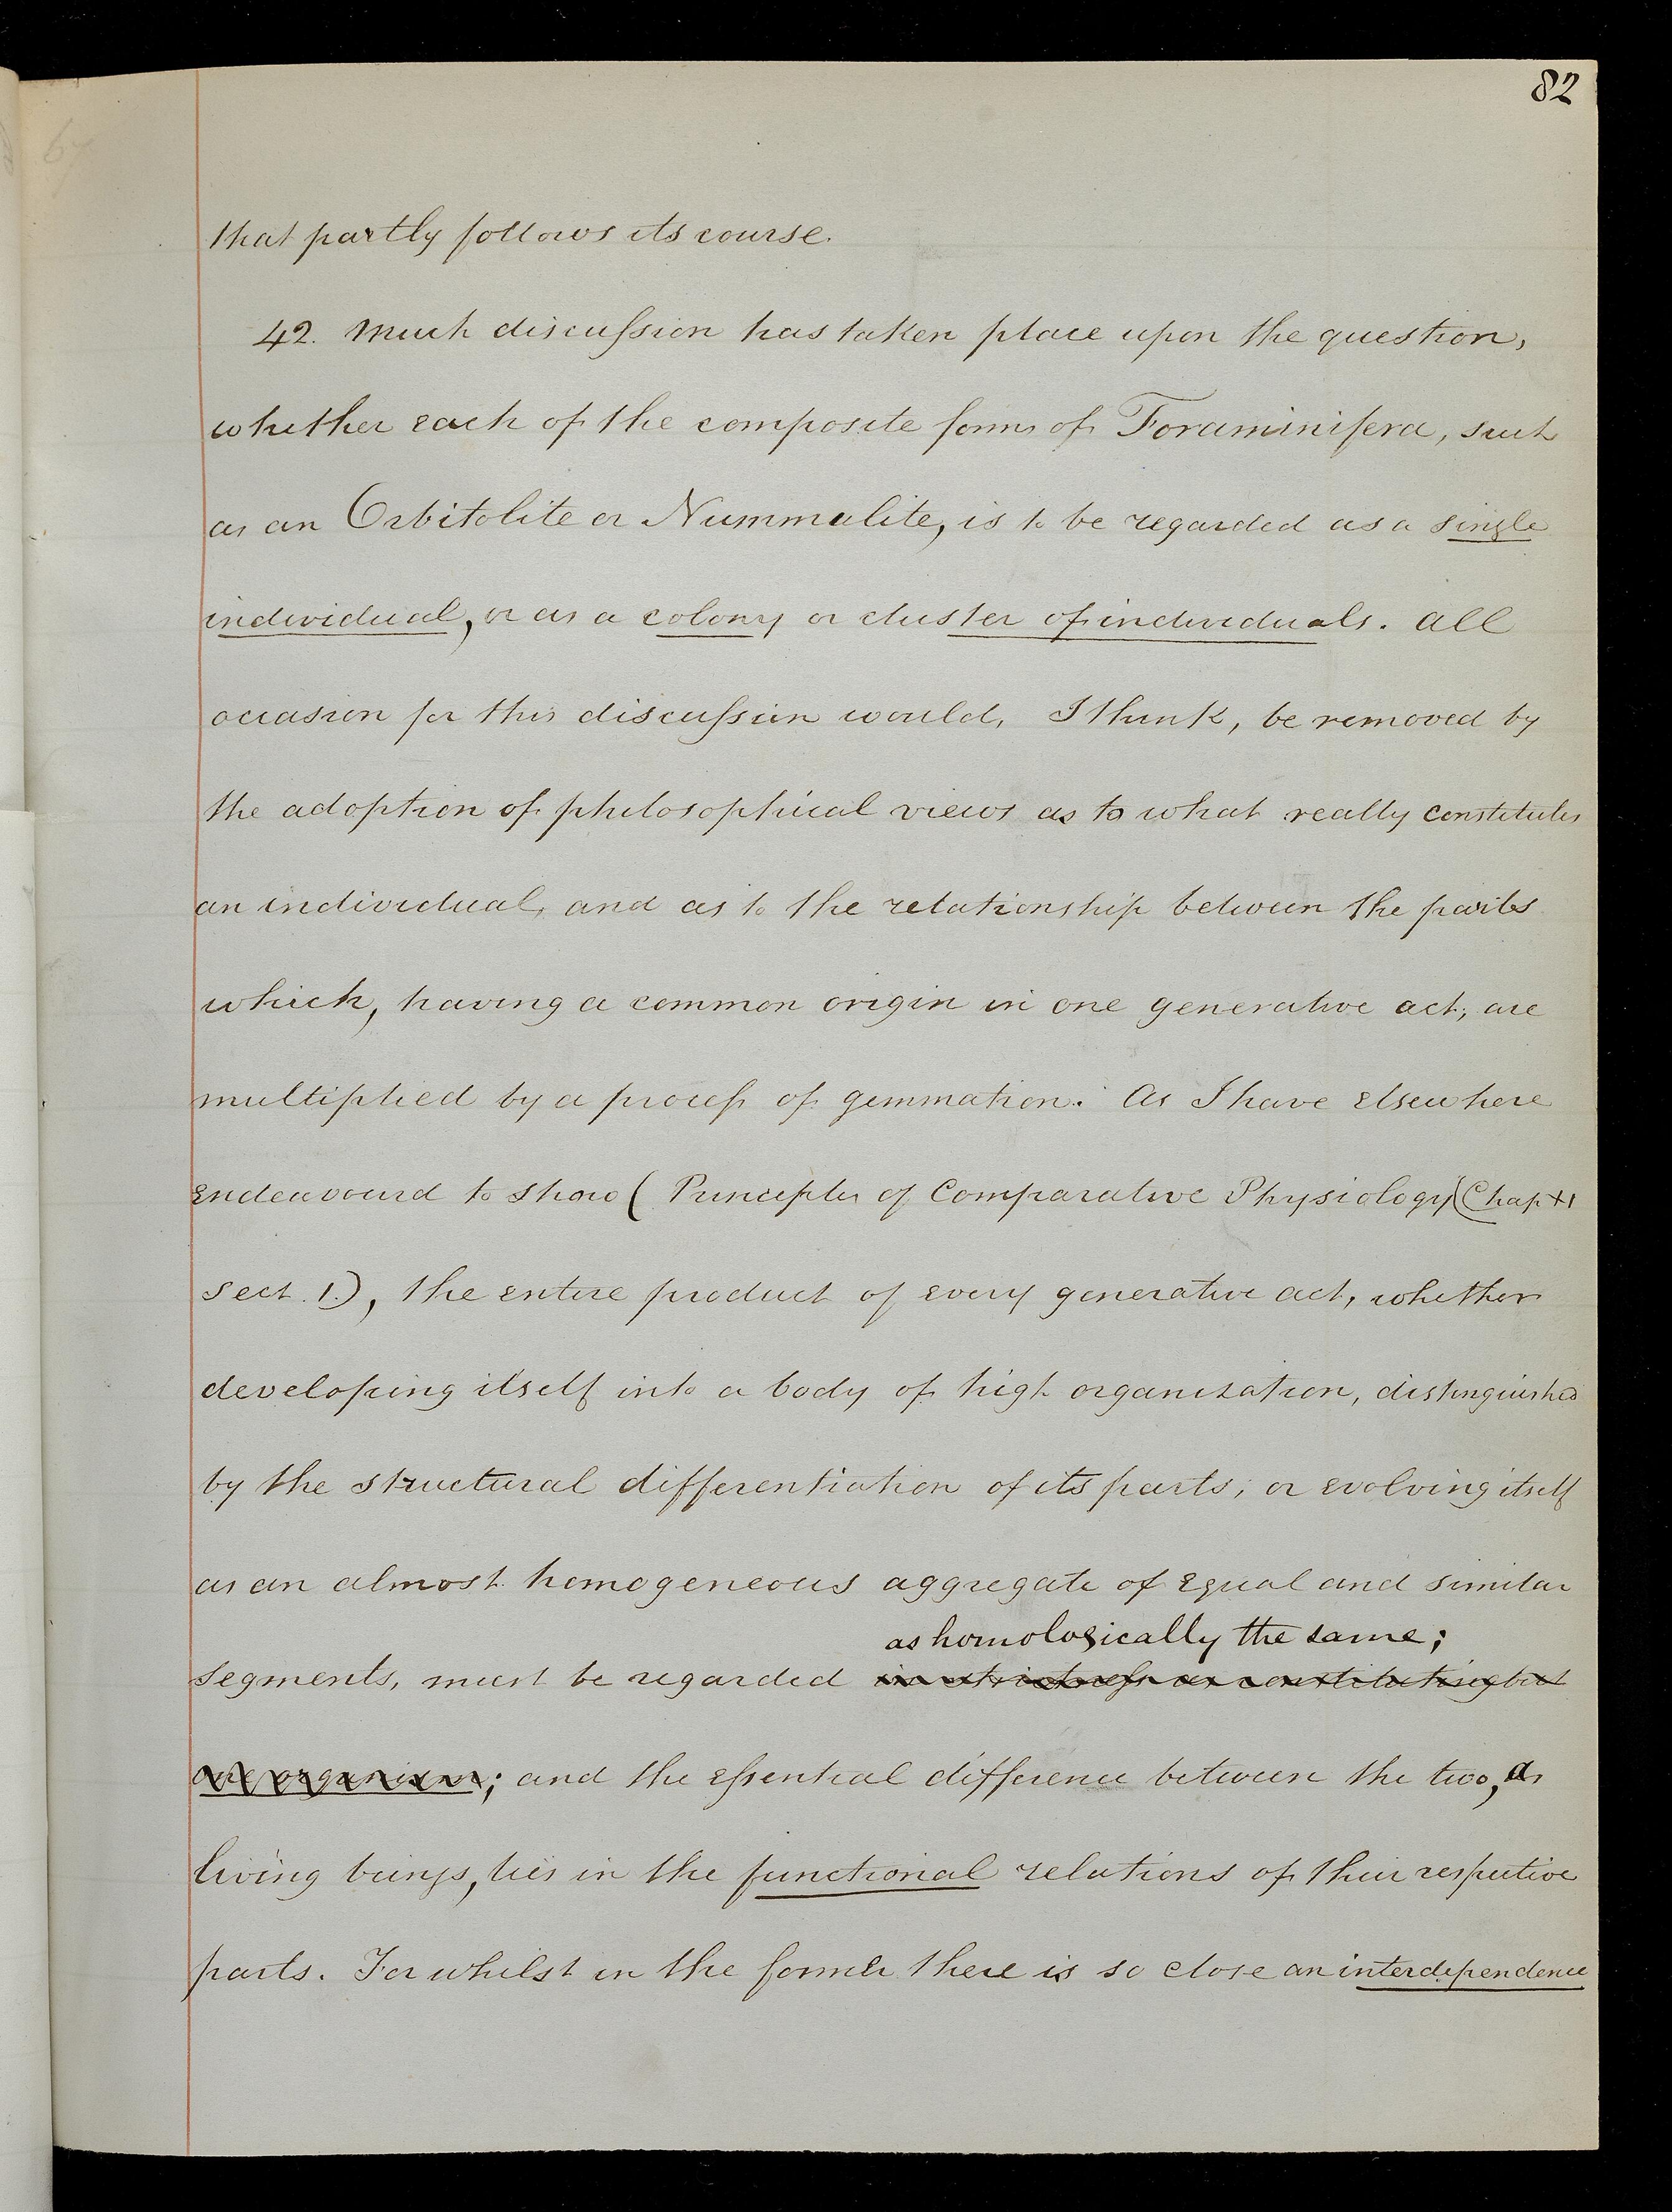 82
that partly follows its course.
42. Much discussion has taken place upon the question,
whether each of the composite forms of Foraminifera, such
as an Orbitolite or Nummulite, is to be regarded as a single
individual, or as a colony or cluster of individuals. All
occasion for this discussion would, I think, be removed by
the adoption of philosophical views as to what really constitutes
an individual, and as to the relationship between the parts
which, having a common origin in one generative act, are
multiplied by a process of gemmation. As I have elsewhere
endeavoured to show (Principles of Comparative Physiology (Chap XI
sect. 1.), the entire product of every generative act, whether
developing itself into a body of high organization, distinguished
by the structural differentiation of its parts; or evolving itself
as an almost homogeneous aggregate of equal and similar
as homologically the same;
segments, must be regarded in strictness as constituting but
one organism; and the essential difference between the two, as
living beings, lies in the functional relations of their respective
parts. For whilst in the former there is so close an interdependence